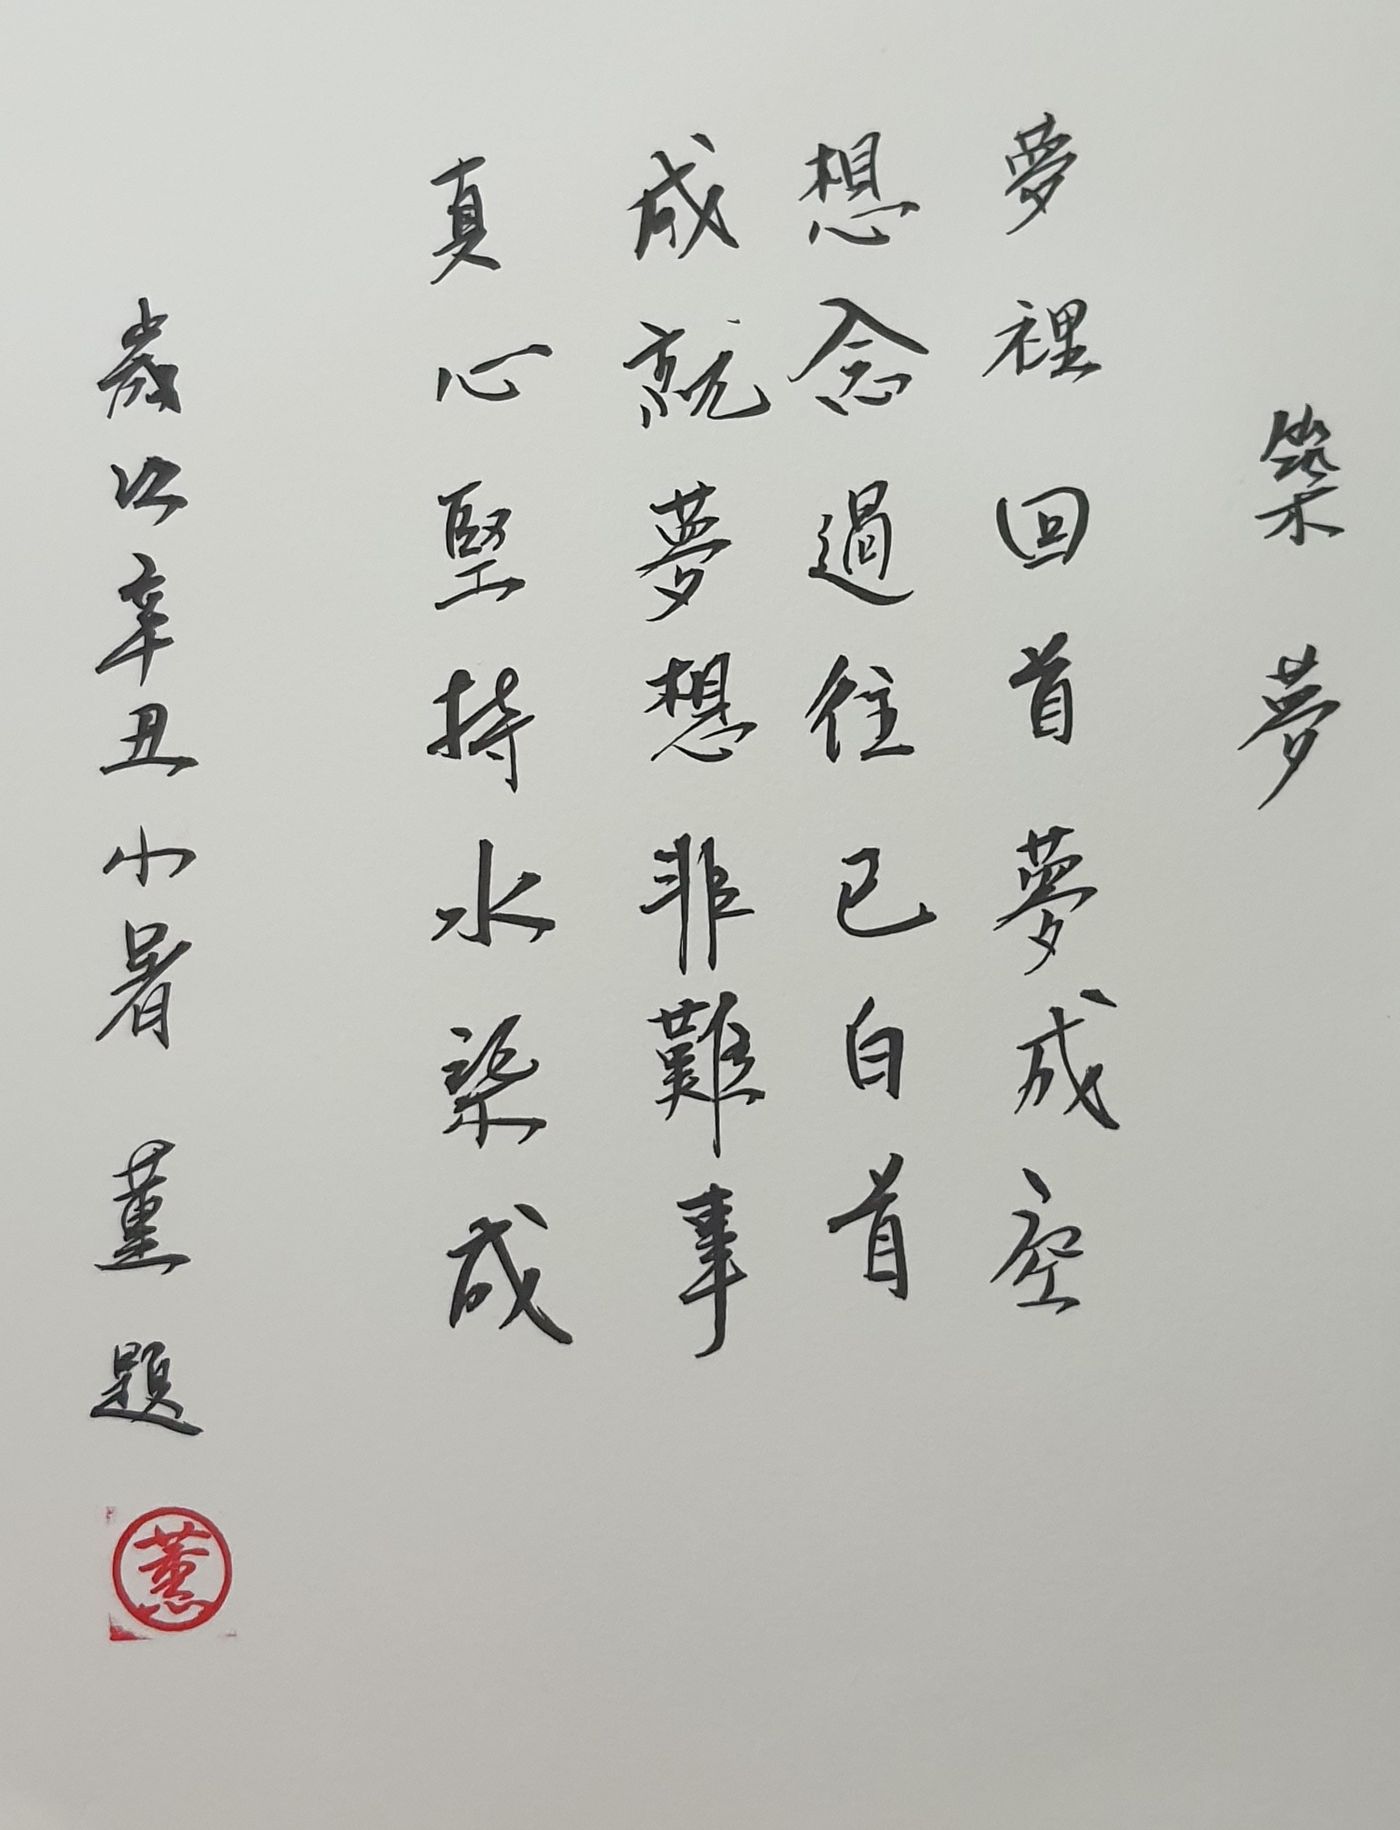 築夢
夢裡回首夢成空
想念過往已白首
成就夢想非難事
真心堅持水渠成
歲次辛丑小暑 薰題
薰